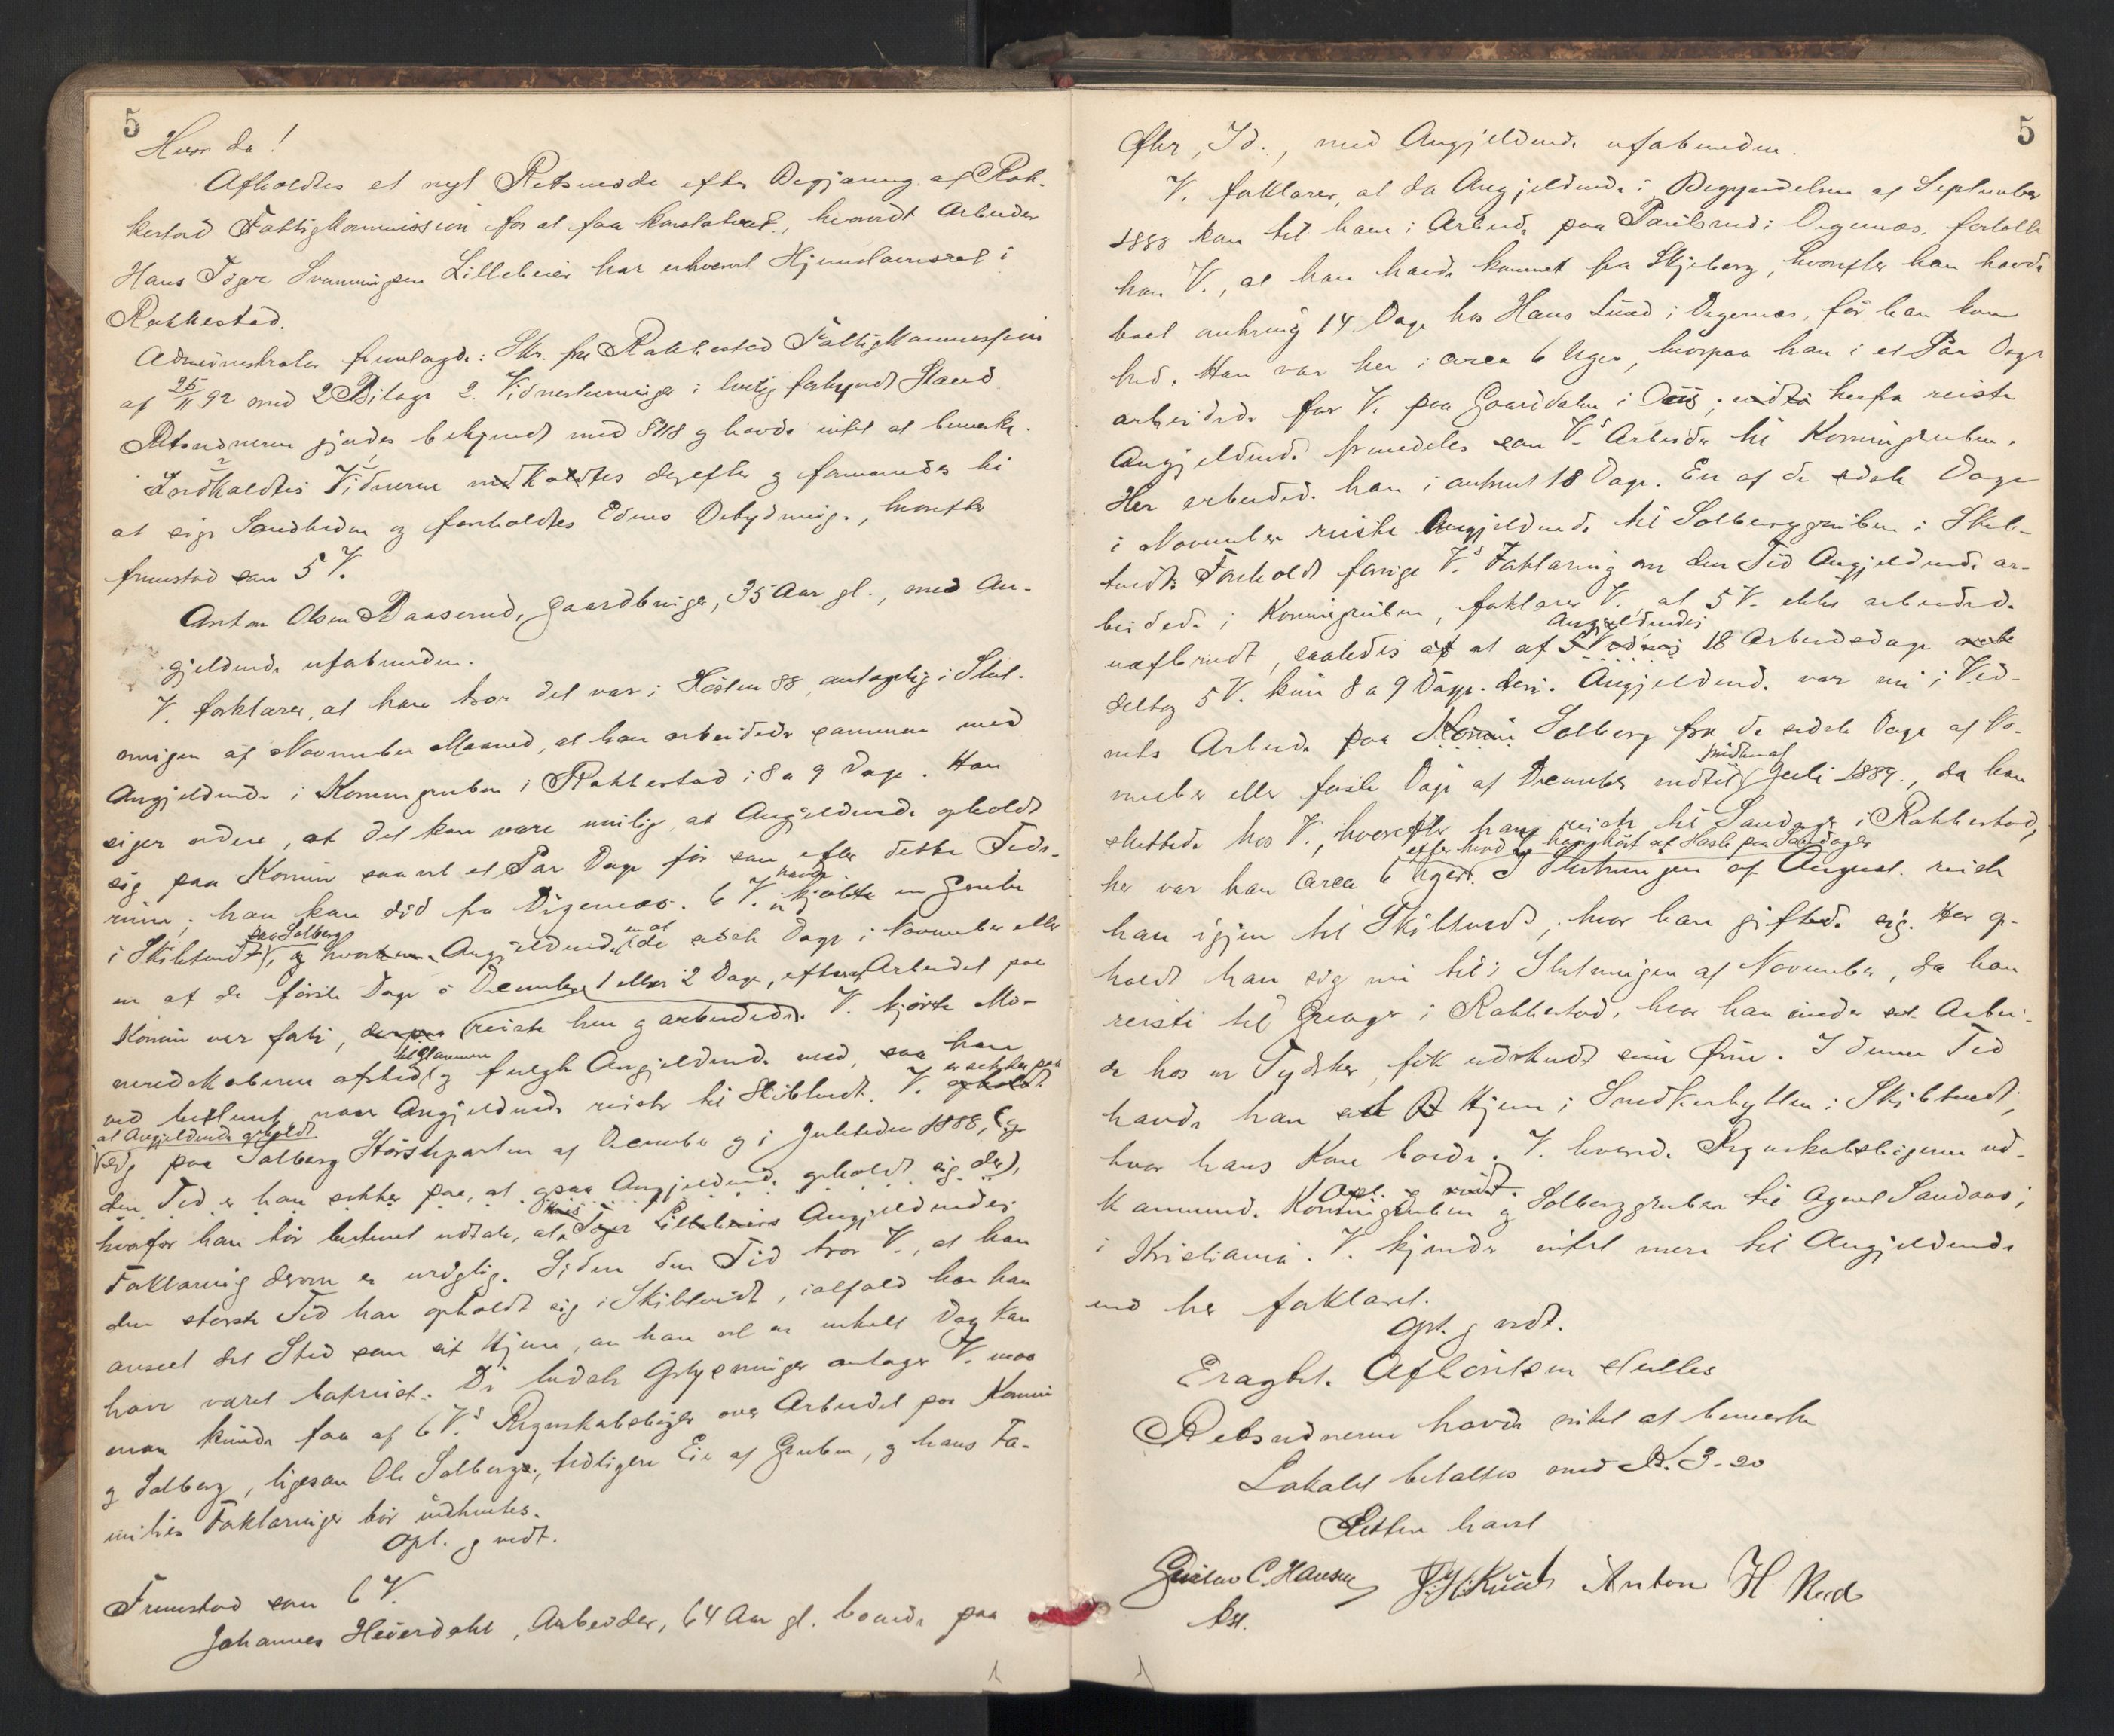 5
Hvor da!
Afholdtes et nyt Retsmøde efter Begjæring af Rak-
kestad Fattigkommission for at faa konstateret, hvorvidt Arbeider
Hans Tøger Svenningsen Lillebeier har erhvervet Hjemstavnsret i
Rakkestad.
Administrator fremlagde: Skr. fra Rakkestad Fattigkommission
af 25/11 92 med 2 Bilage 2. Vidnestevninger i lovlig forkyndt Stand.
Retsvidnerne gjordes bekjendt med § 118 og havde intet at bemerke.
Indkaldtes Vidnerne derefter og formanedes til
at sige Sandheden og foreholdtes Edens Betydning, hvorefter
fremstod som 5 V.
Anton Olsen Baaserud, Gaardbruger, 35 Aar gl., med An-
gjeldende ubeslægtet.
V. forklarer, at han tror det var i Høsten 88, antagelig i Slut-
ningen af November Maaned, at han arbeidede sammen med
Angjeldende i Komingruben i Rakkestad i 8 a 9 Dage. Han
siger videre, at det kan være mulig, at Angjeldende opholdt
sig paa Komin saavel et Par Dage før som efter dette Tids-
rum; han kom did fra Digernæs. 6 V. havde kjøbte en Grube
i Skibtvedt, paa Solberg hvor Angjeldende en af de sidste Dage i November eller
en af de første Dage i December 1 eller 2 Dage, efterat Arbeidet paa
Komin var forbi, reiste hen og arbeidede. V. kjørte Mi-
neredskaberne afsted til Stammen og fulgte Angjeldende med, saa han
ved bestemt, naar Angjeldende reiste til Skibtvedt. V. er sikker paa
at Angjeldende opholdt
sig paa Solberg Størsteparten af December og i Juletiden 1888, (og
den Tid er han sikker paa, at ogsaa Angjeldende opholdt sig der),
hvorfor han tør bestemt udtale, at Hans Tøger Lillebeiers Angjeldendes
Forklaring derom er urigtig. Siden den Tid tror V., at han
den største Tid har opholdt sig i Skibtvedt, ialfald har han
anseet det Sted som sit Hjem, om han vel en enkelt Dag kan
have været bortreist. De bedste Oplysninger antager V. maa
man kunde faa af 6 V.s Regnskabsbøger over Arbeidet paa Komin
og Solberg, ligesom Ole Solberg, tidligere Eier af Gruben, og hans Fa-
milies Forklaringer bør indhentes.
Opl. og vedt.
Fremstod som 6 V.
Johannes Heierdahl, Arbeider, 64 Aar gl. boende paa
5
Øttr, Id., med Angjeldende ubeslægtet.
V. forklarer, at da Angjeldende i Begyndelsen af September
1888 kom til ham i Arbeide paa Paulsrud i Digernæs, fortalte
han V., at han havde kommet fra Skjeberg, hvorefter han havde
boet omkring 14 Dage hos Hans Lund i Digernæs, før han kom
hid. Han var her i circa 6 Uger, hvorpaa han i et Par Dage
arbeidede for V. paa Gaardalen i Aas; herfra reiste
Angjeldende fremdeles som V.s Arbeider til Komingruben.
Her arbeidede han i omtrent 18 Dage. En af de sidste Dage
i November reiste Angjeldende til Solberggruben i Skib-
tvedt. Foreholdt forrige V.s Forklaring om den Tid Angjeldende ar-
beidede i Komingruben, forklarer V. at 5 V. ikke arbeidede
uafbrudt, saaledes at af Angjeldendes 18 Arbeidsdage
deltog 5 V. kun 8 a 9 Dage deri. Angjeldende var nu i Vid-
nets Arbeide paa Solberg fra de sidste Dage af No-
vember eller første Dage af December indtil Midten af Juli 1889, da han
sluttede hos V., hvorefter han reiste til Sandager i Rakkestad,
efter hvad han hørt af Hasle paa Sandager
her var han circa 6 Uger. I Slutningen af August reiste
han igjen til Skibtvedt, hvor han giftede sig. Her op-
holdt han sig nu til i Slutningen af November, da han
reiste til Grenge i Rakkestad, hvor han under sit Arbei-
de hos en Tydsker fik udskudt sine Øine. I denne Tid
havde han Hjem i Snedkerhytten i Skibtvedt,
hvor hans Kone boede. V. hvorede Regnskabsbøgerne ved-
kommende Komingruben og Solberggruben til Agent Sandaas i
Opl. og vedt.
i Kristiania. V. kjender intet mere til Angjeldende
end her forklaret.
Opl. og vedt.
Eragtet. Afhøringen sluttes
Retsvidnerne havde intet at bemerke
Lokalet betaltes med Kr. 3-20
Retten hævet
Gustav C. Hansen J. H. Kruut Anton H. Rud
bst.